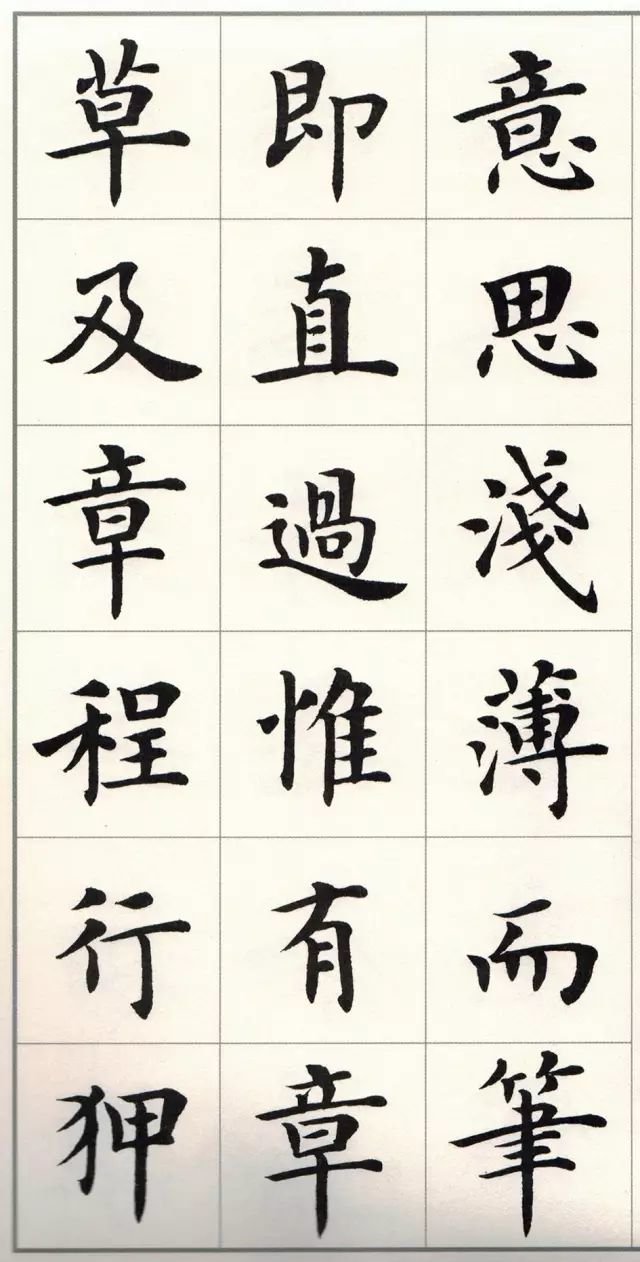 意思淺薄而筆
即直過惟有章
草及章程行狎